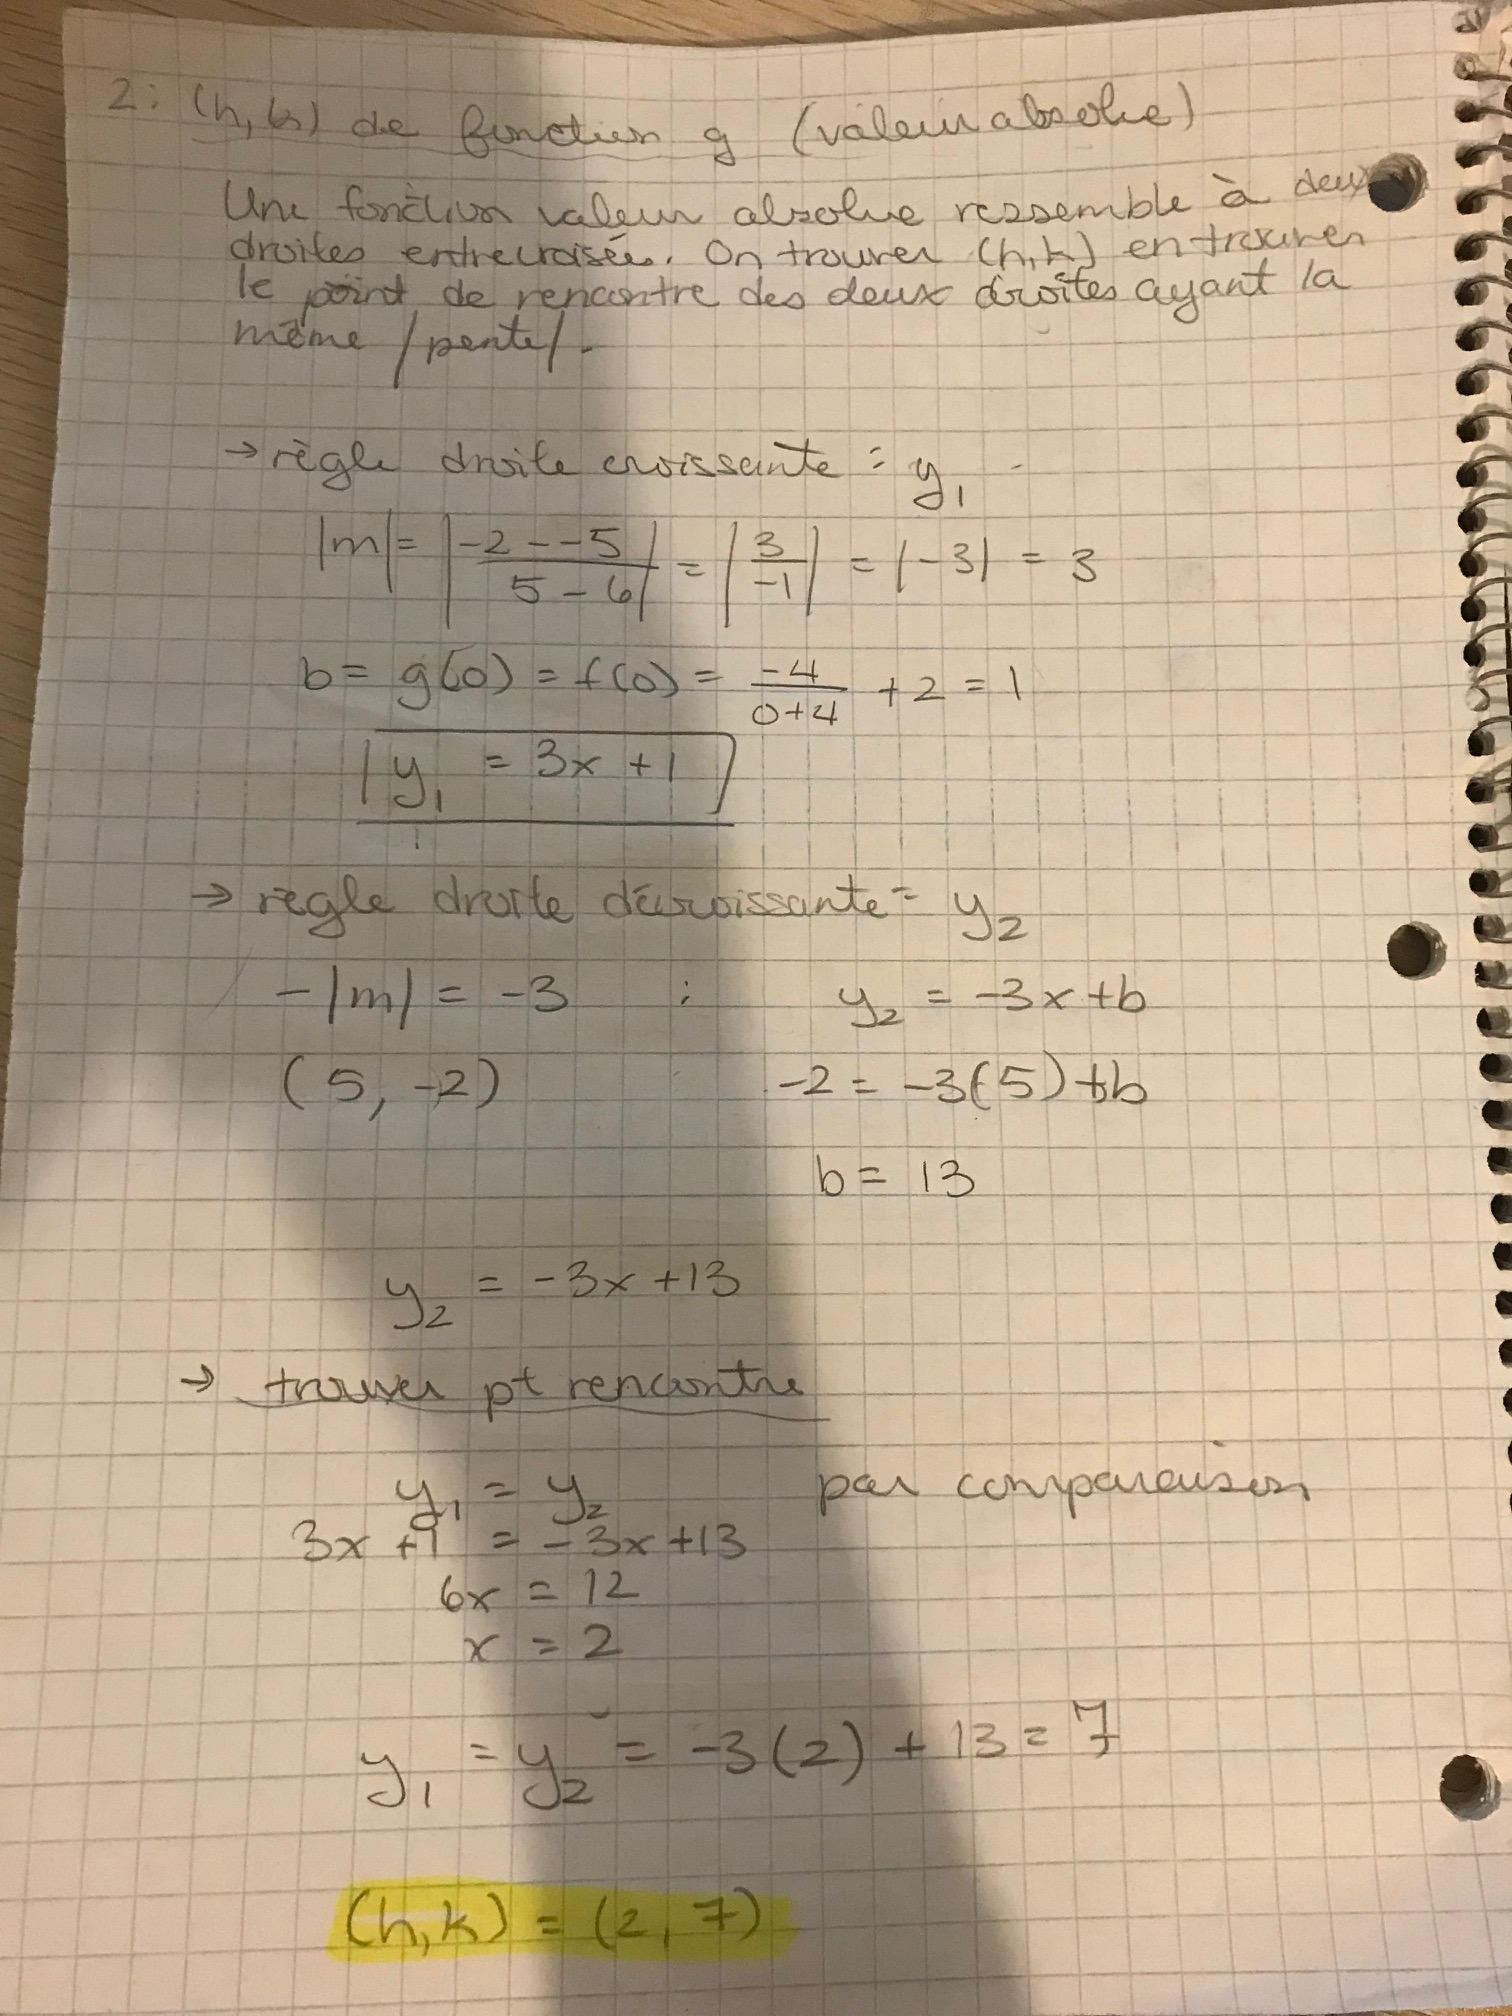 2: (h,k) de fonction g (valeur absolue)
Une fonction valeur absolue ressemble à deux
droites entrecroisées. On trouver (h,k) en trouver
le point de rencontre des deux droites ayant la
même |pente|.
→ règle droite croissante : y₁
|m| = |(-2 - -5)/(5 - 6)| = |3/-1| = |-3| = 3
b = g(0) = f(0) = -4/(0+4) + 2 = 1
y₁ = 3x + 1
→ règle droite décroissante = y₂
-|m| = -3 : y₂ = -3x + b
(5, -2) -2 = -3(5) + b
b = 13
y₂ = -3x + 13
→ trouver pt rencontre
y₁ = y₂ par comparaison
3x + 1 = -3x + 13
6x = 12
x = 2
y₁ = y₂ = -3(2) + 13 = 7
(h,k) = (2,7)